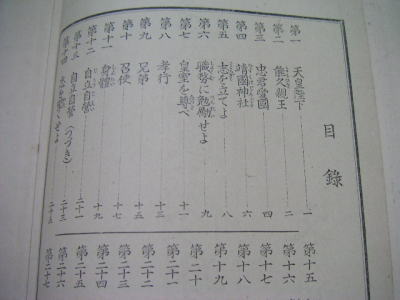 目錄
第一 天皇陛下 一
第二 能久親王 二
第三 忠君愛國 四
第四 靖國神社 六
第五 志を立てよ 八
第六 職務に勉勵せよ 九
第七 皇室を尊べ 十一
第八 孝行 十三
第九 兄弟 十五
第十 召使 十七
第十一 身體 十九
第十二 自立自營 二十一
第十三 自立自營(つづき) 二十三
第十四 せよ 二十五
第十五
第十六
第十七
第十八
第十九
第二十
第二十一
第二十二
第二十三
第二十四
第二十五
第二十六
第二十七